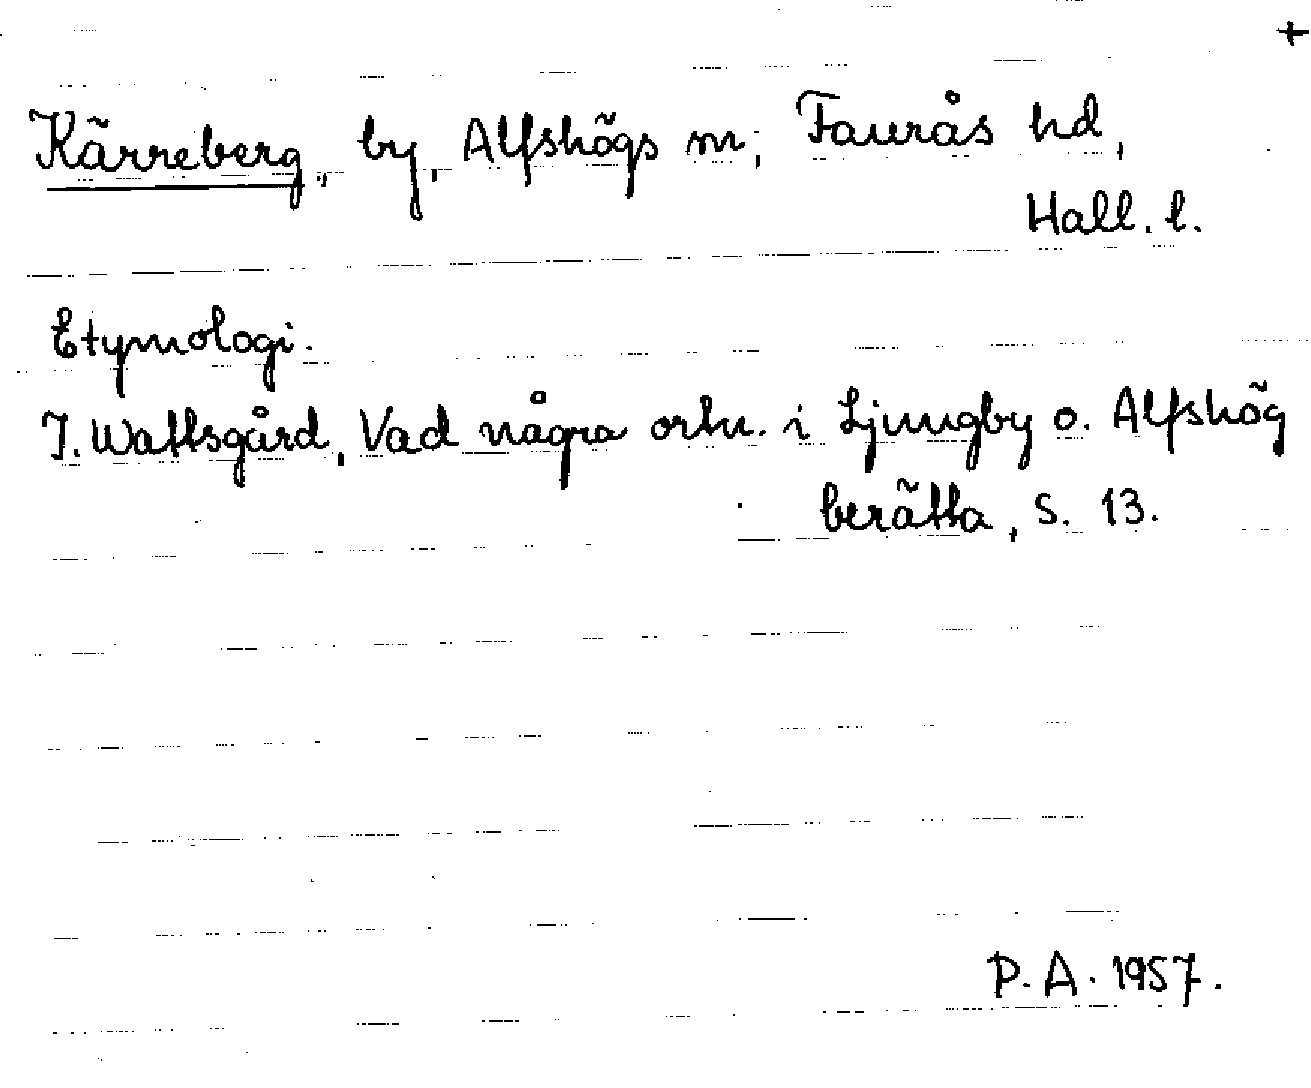 +
Kärreberg, by, Alfshögs sn, Faurås hd,
Hall. l.
Etymologi.
J. Wattsgård, Vad några ortn. i Ljungby o. Alfshög
berätta, s. 13.
P. A. 1957.